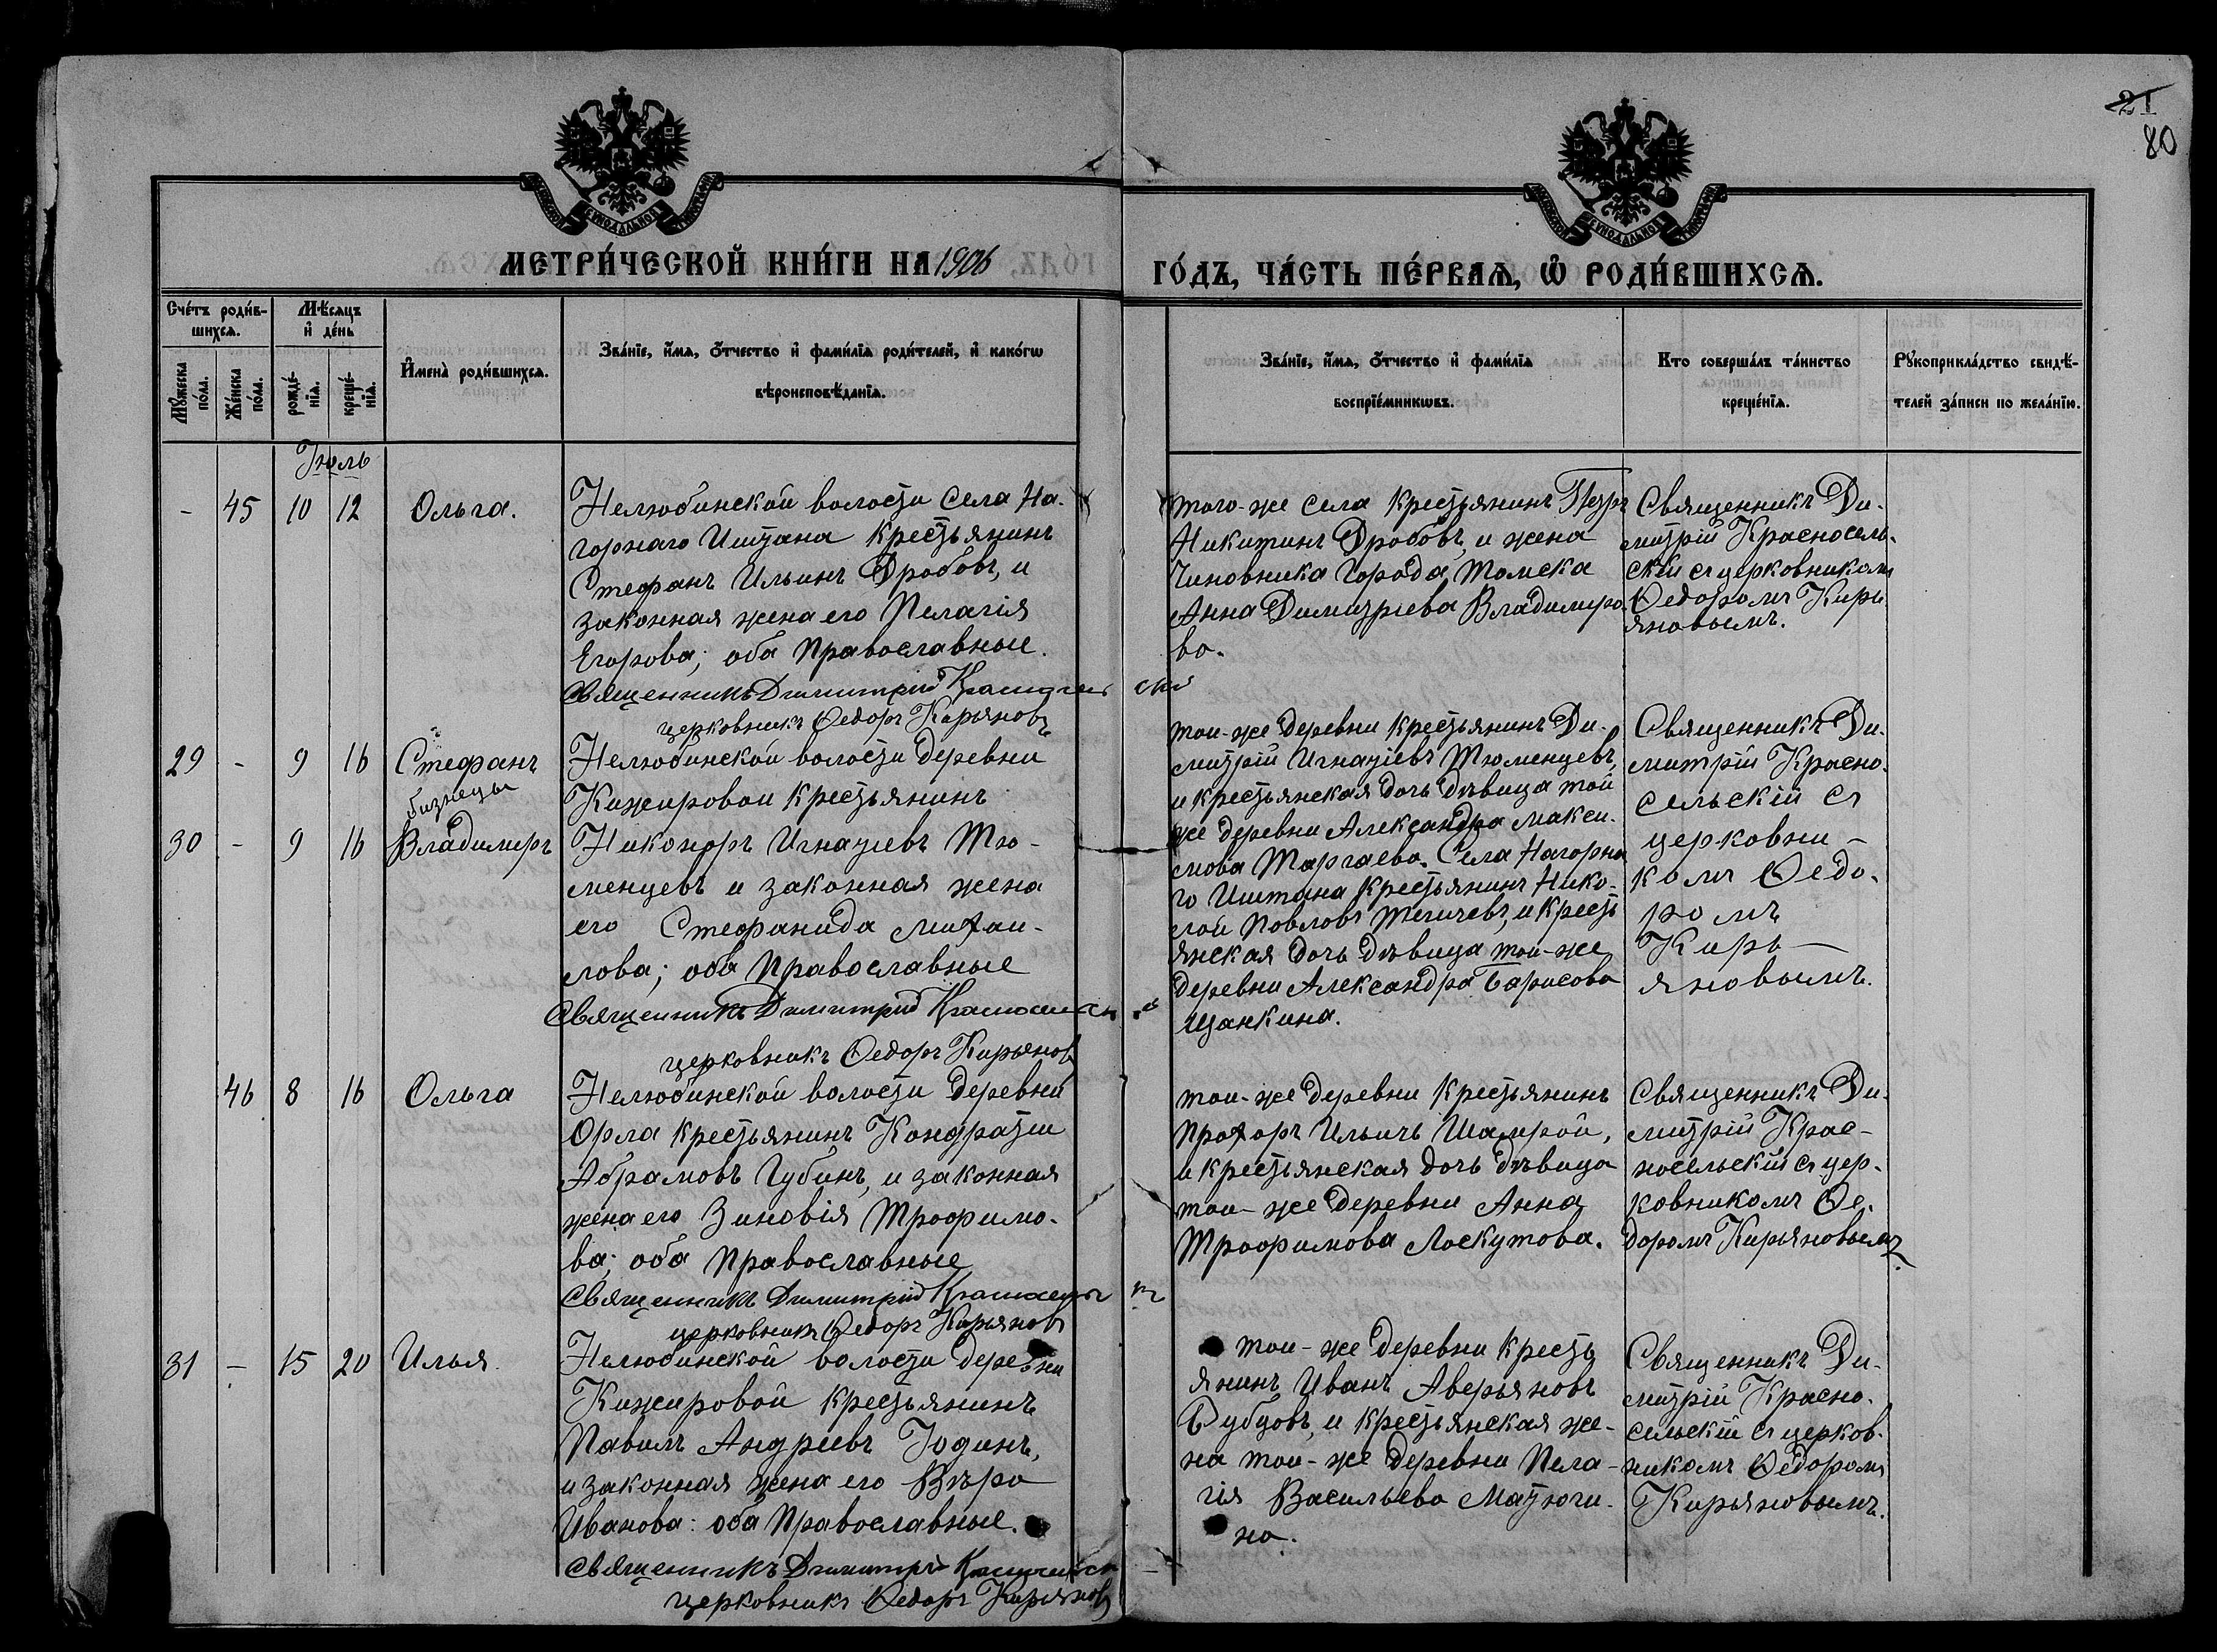 21
80
МЕТРИ́ЧЕСКОЙ КНИ́ГИ НА 1906
ГО́ДЪ, ЧА́СТЬ ПЕ́РВАѦ, Ѽ РОДИ́ВШИХСѦ.
Сче́тъ роди́в-
шихсѧ.
Мꙋжеска по́ла.
Же́нска по́ла.
Мѣ́сѧцъ
и҆ де́нь
рожде́-
нїѧ.
креще́-
нїѧ.
И҆мена̀ роди́вшихсѧ.
Зва́нїе, и҆́мѧ, ѻ҆́тчество и҆ фами́лїѧ роди́телей, и҆ како́гѡ
вѣроисповѣ́данїѧ.
Зва́нїе, и҆́мѧ, ѻ҆́тчество и҆ фами́лїѧ
воспрїе́мникѡвъ.
Кто соверша́лъ та́инство
креще́нїѧ.
Рꙋкоприкла́дство свидѣ́-
телей за́писи по жела́нїю.
Іюль
- 45 10 12 Ольга.
Нелюбинской волости села На-
горнаго Иштана крестьянинъ
Стефанъ Ильинъ Дробовъ, и
законная жена его Пелагія
Егорова; оба православные.
Священникъ Димитрій Красносель
скій
церковникъ Ѳедоръ Кирьяновъ
того-же села крестьянинъ Петръ
Никитинъ Дробовъ, и жена
чиновника города Томска
Анна Димитріева Владимиро-
ва.
Священникъ Ди-
митрій Красносель-
скій съ церковникомъ
Ѳедоромъ Кирь
яновымъ.
29 - 9 16 Стефанъ
близнецы
30 - 9 16 Владимиръ
Нелюбинской волости деревни
Кижировой крестьянинъ
Никоноръ Игнатіевъ Тю-
менцевъ и законная жена
его Стефанида Михаи-
лова; оба православные
Священникъ Димитрій Красносельскій
церковникъ Ѳедоръ Кирьяновъ
той-же деревни крестьянинъ Ди-
митрій Игнатіевъ Тюменцевъ,
и крестьянская дочь дѣвица той
же деревни Александра Макси-
мова Таргаева. Села Нагорна
го Иштана крестьянинъ Нико-
лай Павловъ и кресть
янская дочь дѣвица той-же
деревни Александра Барисова
Цанкина.
Священникъ Ди-
митрій Красно-
сельскій съ
церковни-
комъ Ѳедо-
ромъ
Кирь-
яновымъ.
46 8 16 Ольга
Нелюбинской волости деревни
Орла крестьянинъ Кондратій
Абрамовъ Губинъ, и законная
жена его Зиновія Трофимо-
ва; оба православные
Священникъ Димитрій Красносельскій
церковникъ Ѳедоръ Кирьяновъ
той-же деревни крестьянинъ
Прохоръ Ильичъ Шамрой,
и крестьянская дочь дѣвица
той-же деревни Анна
Трофимова Лоскутова.
Священникъ Ди-
митрій Крас-
носельскій съ цер-
ковникомъ Ѳе-
доромъ Кирьяновымъ.
31 - 15 20 Илья.
Нелюбинской волости деревни
Кижировой крестьянинъ
Павилъ Андреевъ Юдинъ,
и законная жена его Вѣра
Иванова: оба православные.
Священникъ Димитрій Красносельск
церковникъ Ѳедоръ Кирьяновъ
той-же деревни кресть
янинъ Иванъ Аверьяновъ
Бубцовъ, и крестьянская же-
на той-же деревни Пела-
гія Васильева Матюги-
на.
Священникъ Ди-
митрій Красно-
сельскій съ церков-
никомъ Ѳедоромъ
Кирьяновымъ.